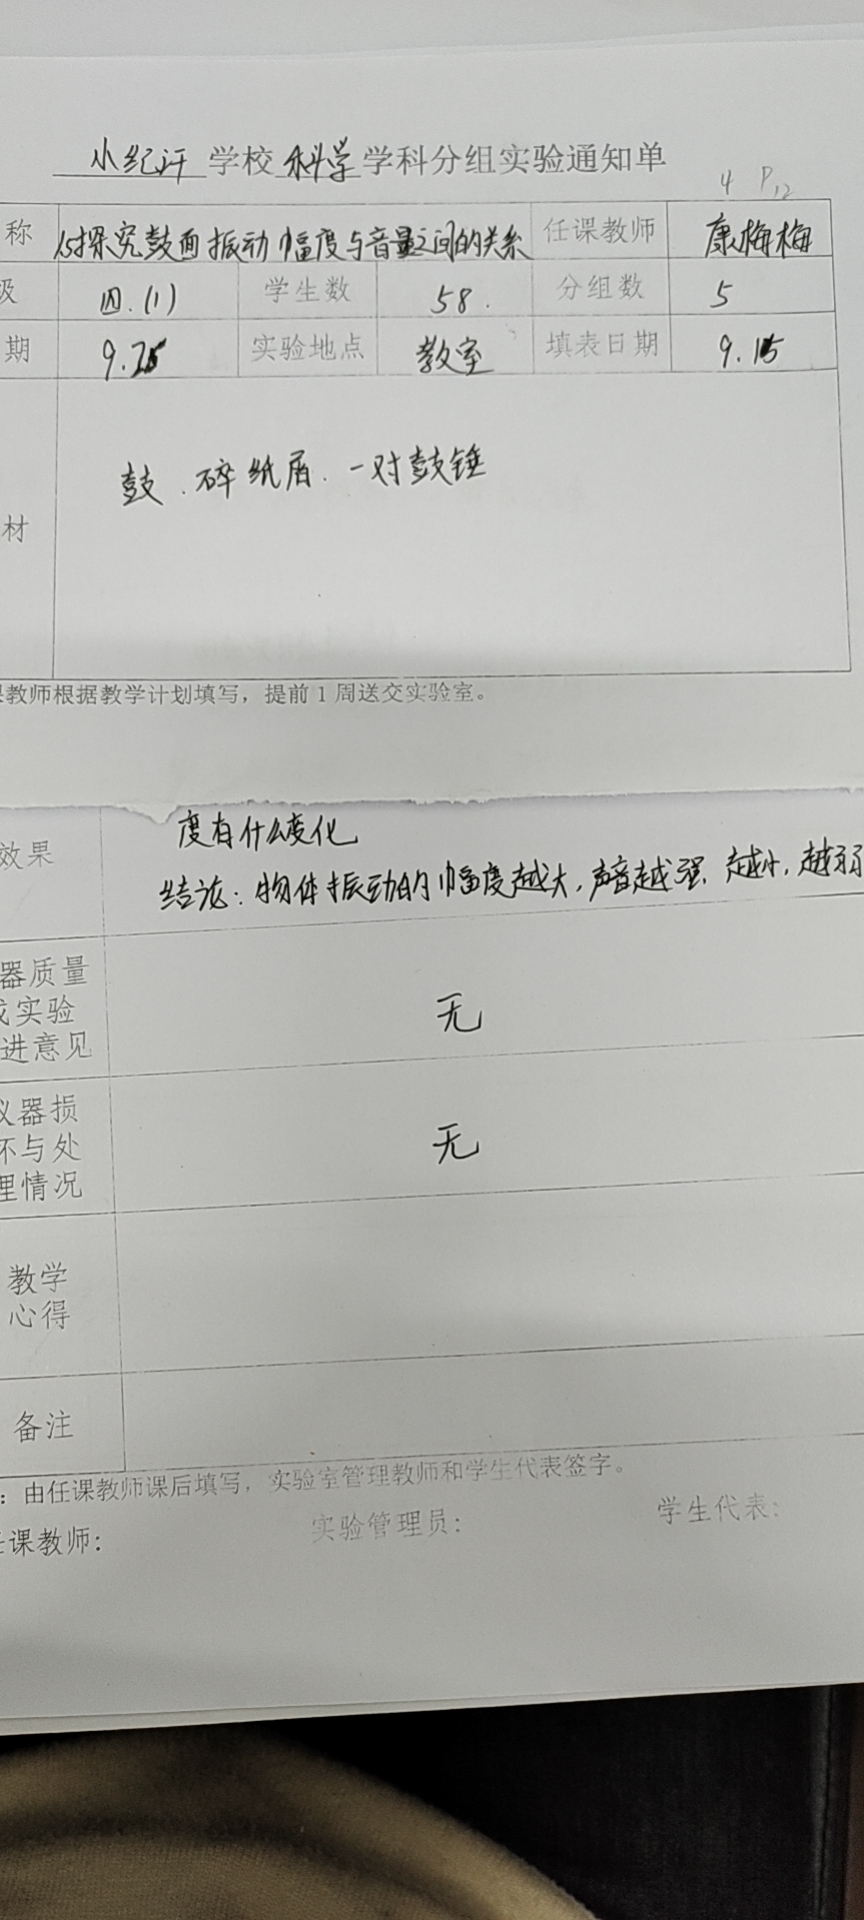 小纪汗 学校 科学 学科分组实验通知单
4 P12
称 15探究鼓面振动幅度与音量之间的关系 任课教师 康梅梅
级 四.(1) 学生数 58. 分组数 5
期 实验地点 教室 填表日期 9.15
鼓.碎纸屑.一对鼓锤
材
课教师根据教学计划填写，提前1周送交实验室。
度有什么变化
效果
结论：物体振动的幅度越大，声音越强，越小，越弱
器质量
或实验
进意见
无
仪器损
坏与处
理情况
无
教学
心得
备注
：由任课教师课后填写，实验室管理教师和学生代表签字。
任课教师： 实验管理员： 学生代表：